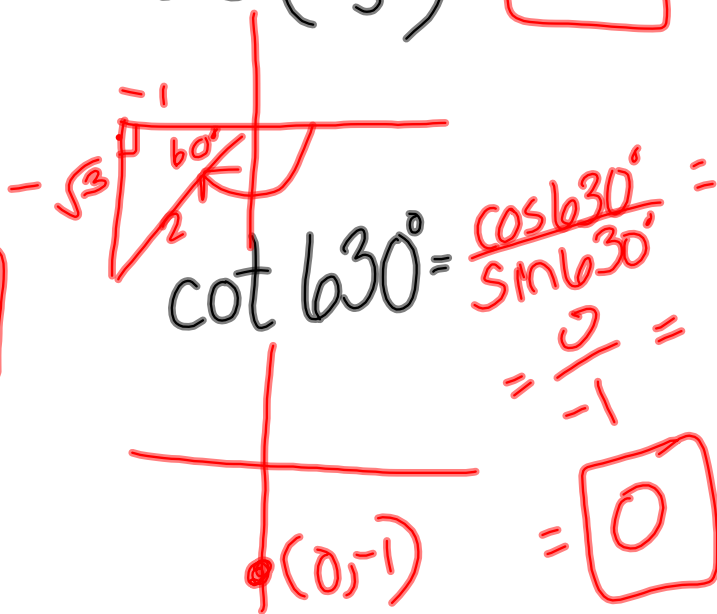 -1
60°
-√3
2
cot 630° = cos630° / sin630° =
= 0 / -1 =
= 0
(0,-1)